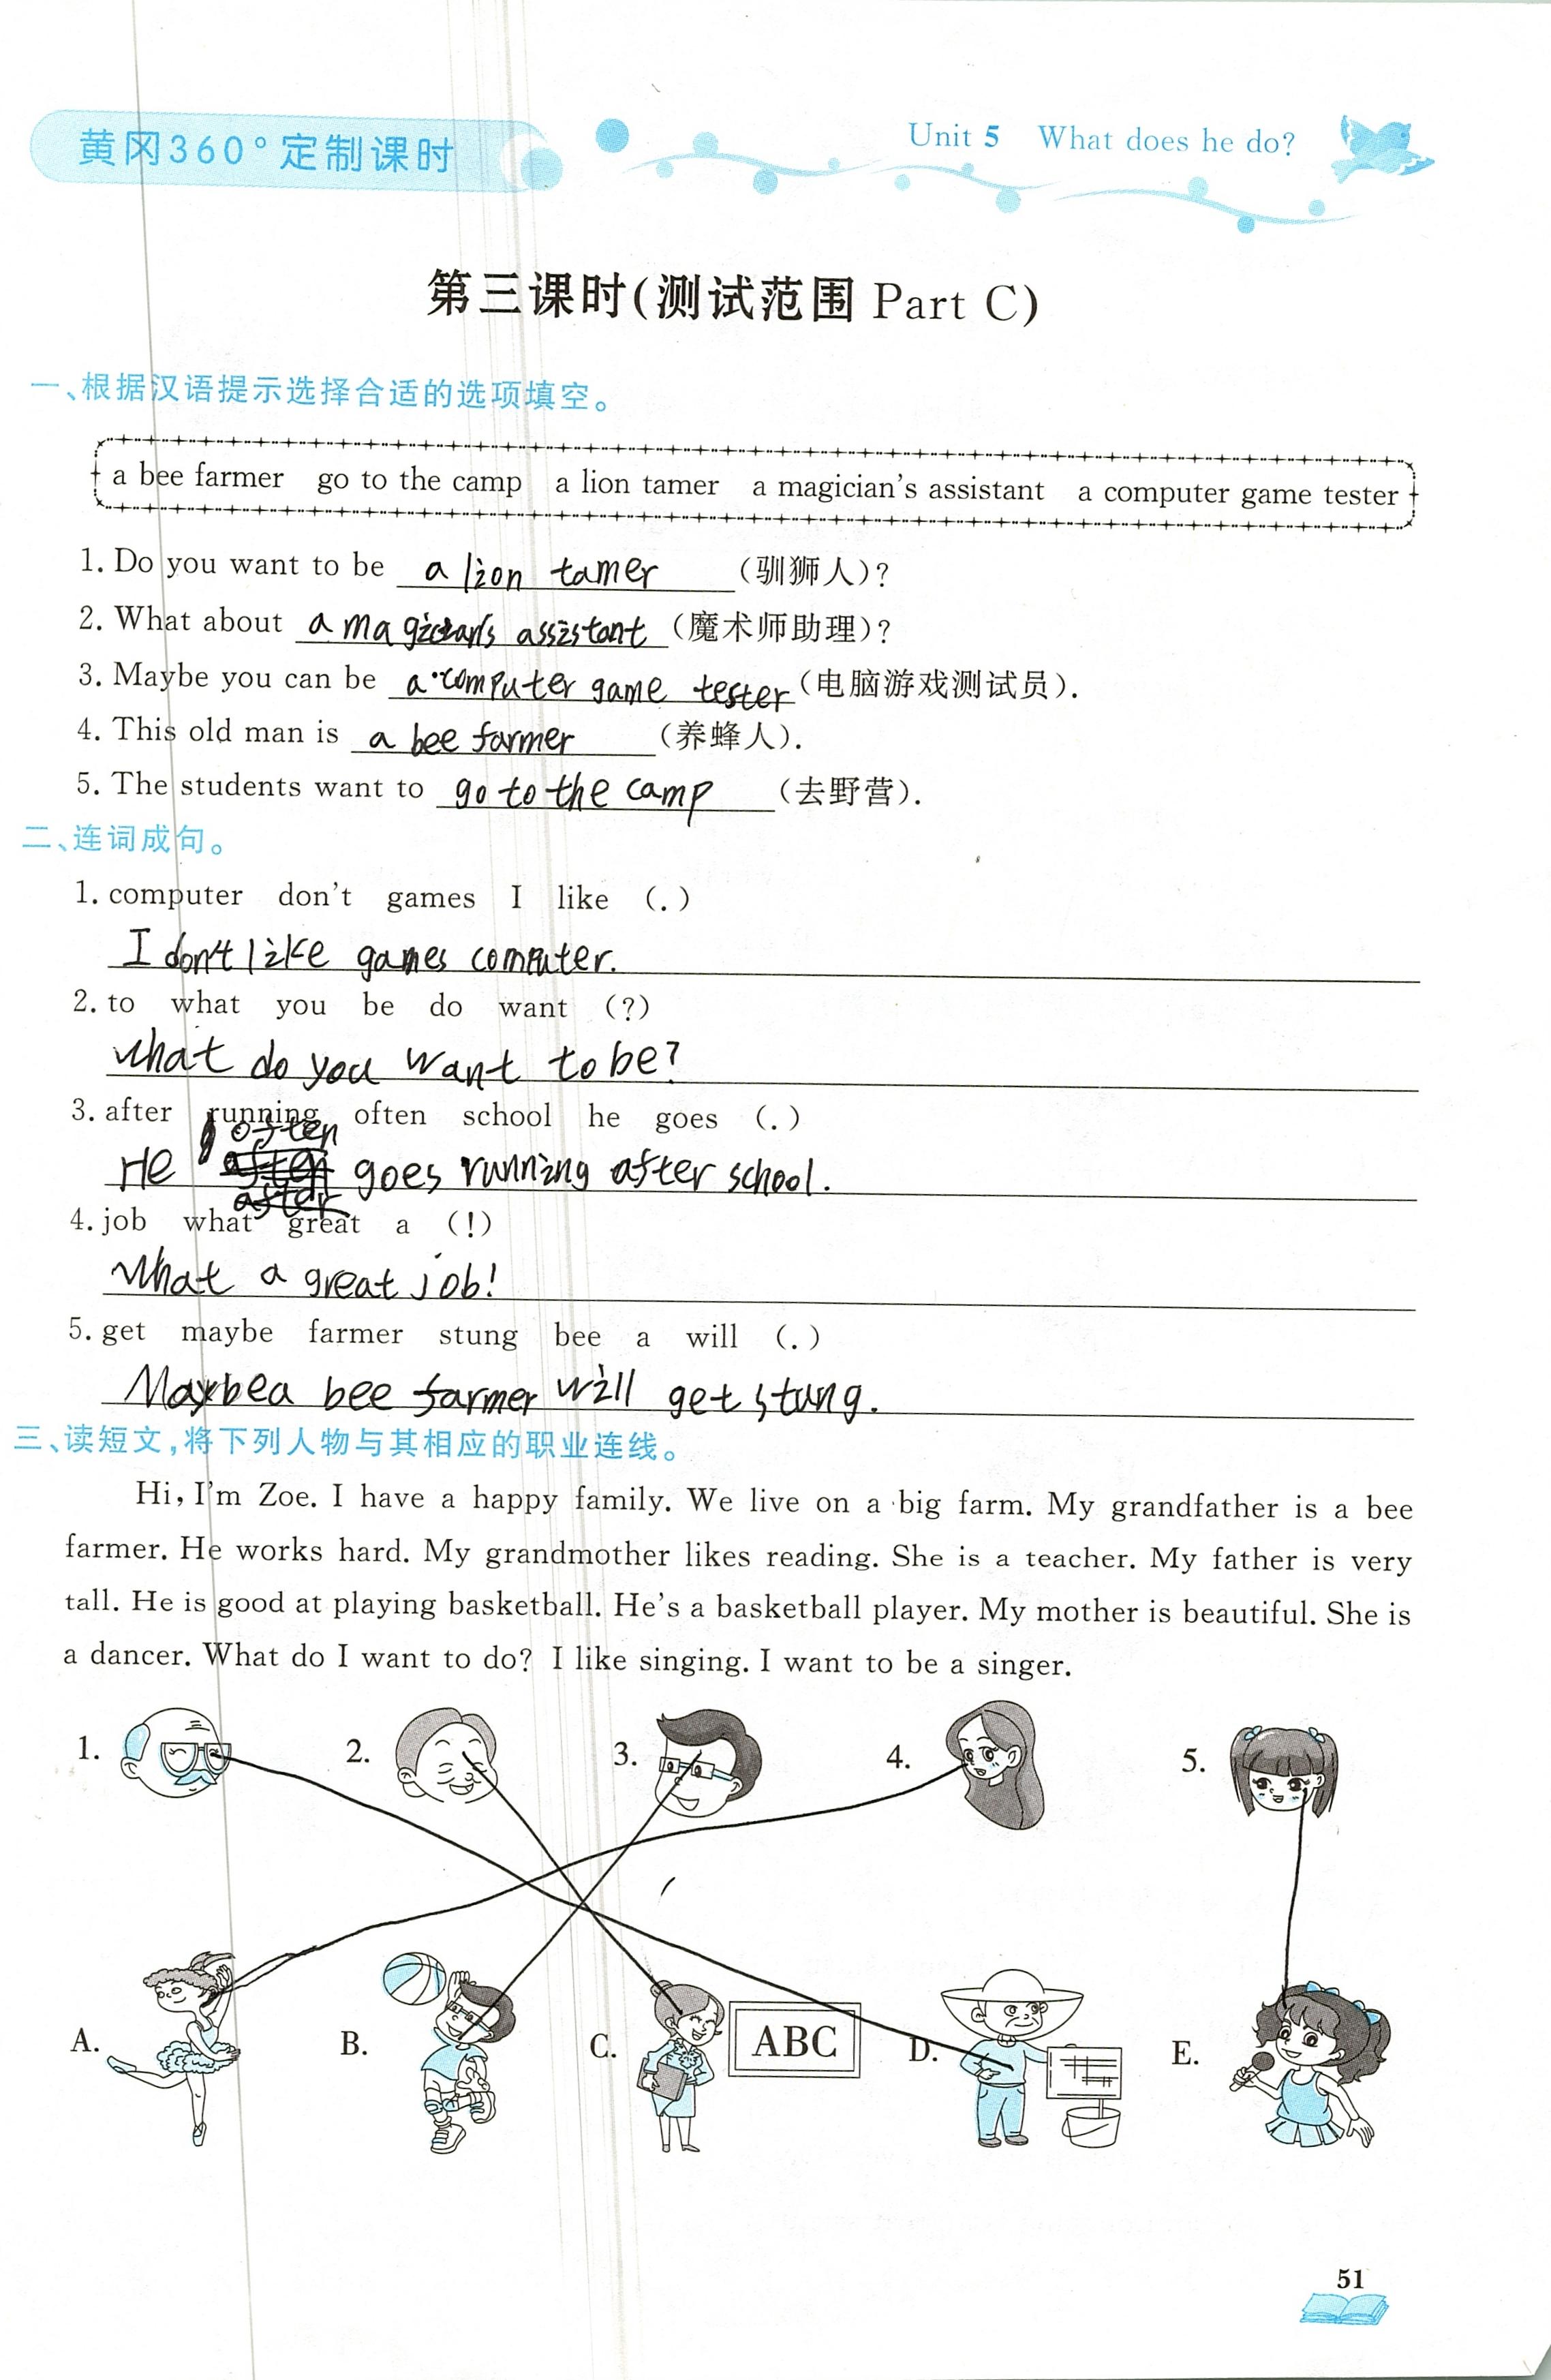 黄冈360°定制课时
Unit 5 What does he do?
第三课时(测试范围 Part C)
一、根据汉语提示选择合适的选项填空。
a bee farmer go to the camp a lion tamer a magician's assistant a computer game tester
1. Do you want to be a lion tamer (驯狮人)?
2. What about a magician's assistant (魔术师助理)?
3. Maybe you can be a computer game tester (电脑游戏测试员).
4. This old man is a bee farmer (养蜂人).
5. The students want to go to the camp (去野营).
二、连词成句。
1. computer don't games I like (.)
I don't like games computer.
2. to what you be do want (?)
what do you want to be?
3. after running often school he goes (.)
He often goes running after school.
4. job what great a (!)
What a great job!
5. get maybe farmer stung bee a will (.)
Maybe a bee farmer will get stung.
三、读短文,将下列人物与其相应的职业连线。
Hi, I'm Zoe. I have a happy family. We live on a big farm. My grandfather is a bee
farmer. He works hard. My grandmother likes reading. She is a teacher. My father is very
tall. He is good at playing basketball. He's a basketball player. My mother is beautiful. She is
a dancer. What do I want to do? I like singing. I want to be a singer.
1. 2. 3. 4. 5.
A. B. C. ABC D. E.
51